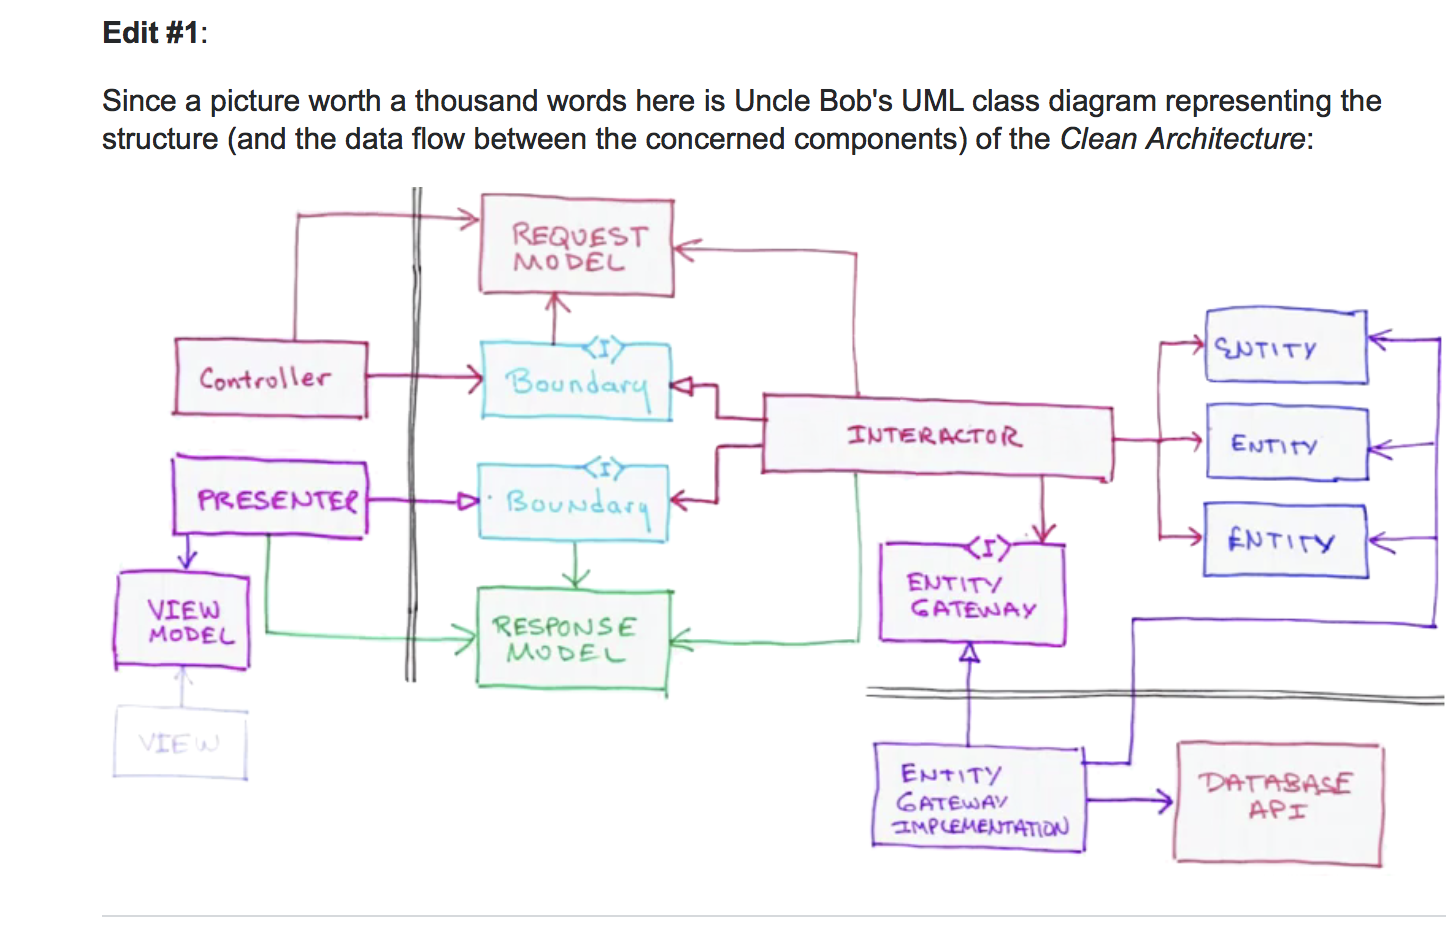 Edit #1:
Since a picture worth a thousand words here is Uncle Bob's UML class diagram representing the
structure (and the data flow between the concerned components) of the Clean Architecture:
REQUEST
MODEL
Controller
<I>
Boundary
INTERACTOR
ENTITY
ENTITY
ENTITY
PRESENTER
<I>
Boundary
<I>
ENTITY
GATEWAY
VIEW
MODEL
RESPONSE
MODEL
VIEW
ENTITY
GATEWAY
IMPLEMENTATION
DATABASE
API